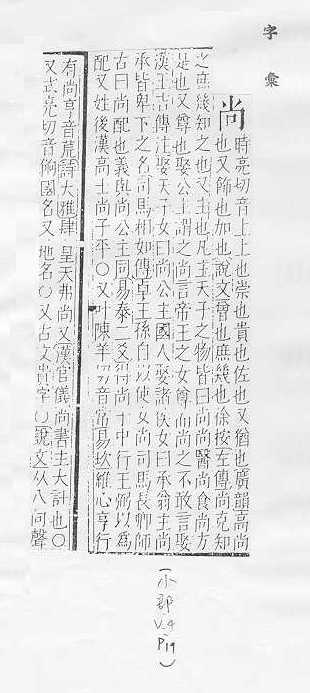 字彙
尚
時亮切音上上也崇也貴也佐也又猶也廣韻高尚
也又飾也加也說文曾也庶幾也徐按左傳尚克知
之庶幾知之也又主也凡主天子之物皆曰尚尚醫尚食尚方
是也又尊也娶公主謂之尚言帝王之女尊而尚之不敢言娶
漢王吉傳注娶天子女曰尚公主國人娶諸侯女曰承翁主尚
承皆卑下之名司馬相如傳卓王孫自以使女尚司馬長卿師
古曰尚配也義與尚公主同易泰二爻得尚于中行王弼以為
配又姓後漢高士尚子平〇又叶陳羊切音常易坎維心亨行
有尚亨音薌詩大雅肆皇天弗尚又漢官儀尚書主大計也〇
又式亮切音餉國名又地名〇又古文貴字〇說文从八向聲
(小部
V.4
P19)